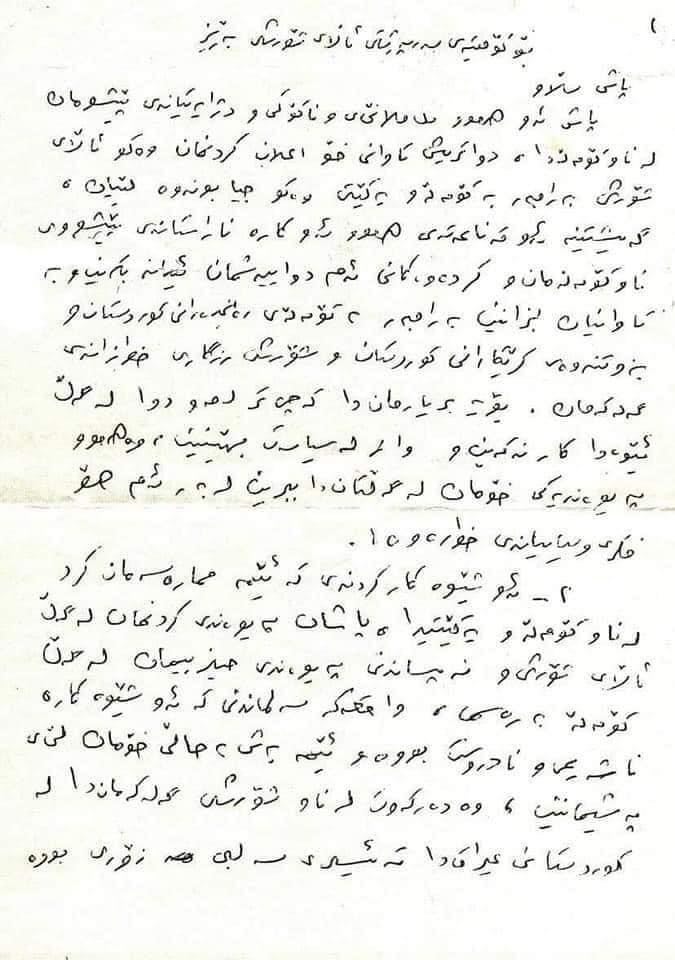 ١
بۆ كۆمیتەی سەرپەرشتی ئاڵای شۆرشی بەرێز
پاش سڵاو
پاش ئەو هەموو ململانێی و ناكۆكی و دژایەتیانەی پێشومان
لەناو كۆمەڵەدا، دواتریش تاوانی خۆ اعلان كردنمان وەكو ئاڵای
شۆرش بەرامبەر بە كۆمەڵە و یەكێتی وەكو جیابونەوە لێیان،
گەیشتینە ئەو قەناعەتەی هەموو ئەو كارە ناراستانەی پێشووی
ناو كۆمەڵەمان و كردەوەكانی ئەم دواییەشمان ئیدانە بكەین و بە
تاوانیان بزانین بەرامبەر بە كۆمەڵەی رەنجدەرانی كوردستان و
بزوتنەوەی كرێكارانی كوردستان و شۆرشی رزگاری خوازانەی
گەلەكەمان. بۆیە بریارمان دا كە چی تر لەمەو دوا لەگەڵ
ئێوەدا كار نەكەین و واز لە سیاسەت بهێنین، وە هەموو
پەیوەندیەكی خۆمان لەگەڵتاندا ببرین لەبەر ئەم هۆ
فكری و سیاسیانەی خوارەوە.
٢ــ ئەو شێوە كاركردنەی كە ئێمە ممارەسەمان كرد
لەناو كۆمەڵە و یەكێتیدا، پاشان پەیوەندی كردنمان لەگەڵ
ئاڵای شۆرش و نەپساندنی پەیوەندی حیزبیمان لەگەڵ
كۆمەڵە بە رەسمی، واقعەكە سەلماندی كە ئەو شێوە كارە
ناشەرعی و نادروست بووە و ئێمە بەش بە حاڵی خۆمان لێی
پەشیمانین، وە دەركەوت لەناو شۆرشی گەلەكەماندا لە
كوردستانی عیراقدا تەئسیری سەلبی زۆری بووە